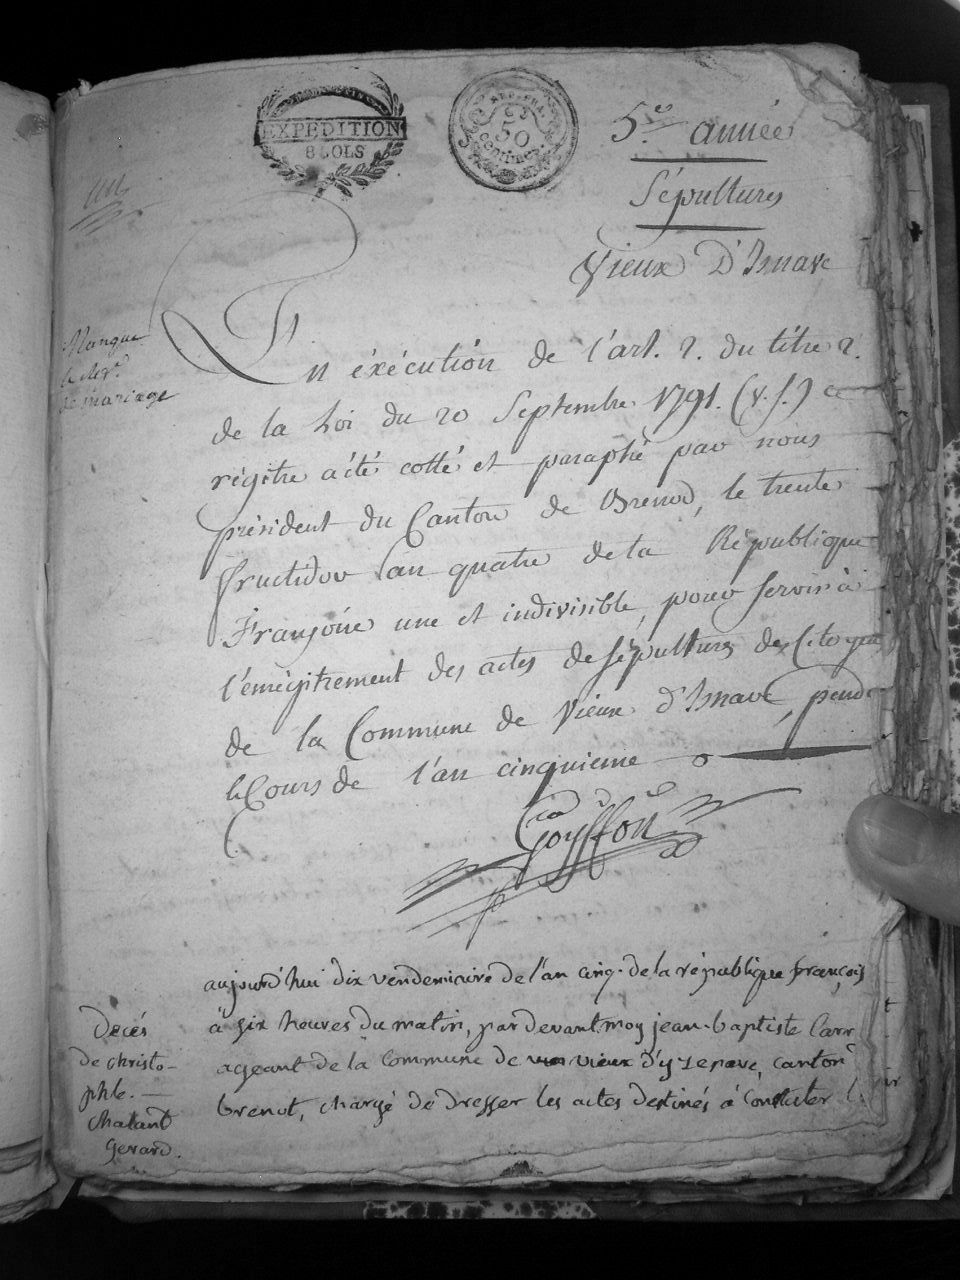 EXPEDITION
8 SOLS
50
centimes
5.e année
Sépultures
Vieux D'Isnave
un
Manque
le reg.r
de mariage
En éxécution de l'art. 2. du titre 2.
de la Loi du 20 Septembre 1791. (v. s.) ce
régitre a été cotté et paraphé par nous
président du Canton de Brenod, le trente
fructidor an quatre de la République
Françoise une et indivisible, pour servir à
l'enrégitrement des actes de sépultures des Citoyens
de la Commune de Vieux d'Isnave, pend
le Cours de l'an cinquieme
Gouffon
aujourd'hui dix vendemiaire de l'an cinq. de la république françois
à six heures du matin, par devant moy jean-baptiste Carr
ageant de la Commune de vieux d'yzenave, canton
brenot, chargé de dresser les actes destinés à constater l
Decés
de christo-
phle.
chatard
Gerard.